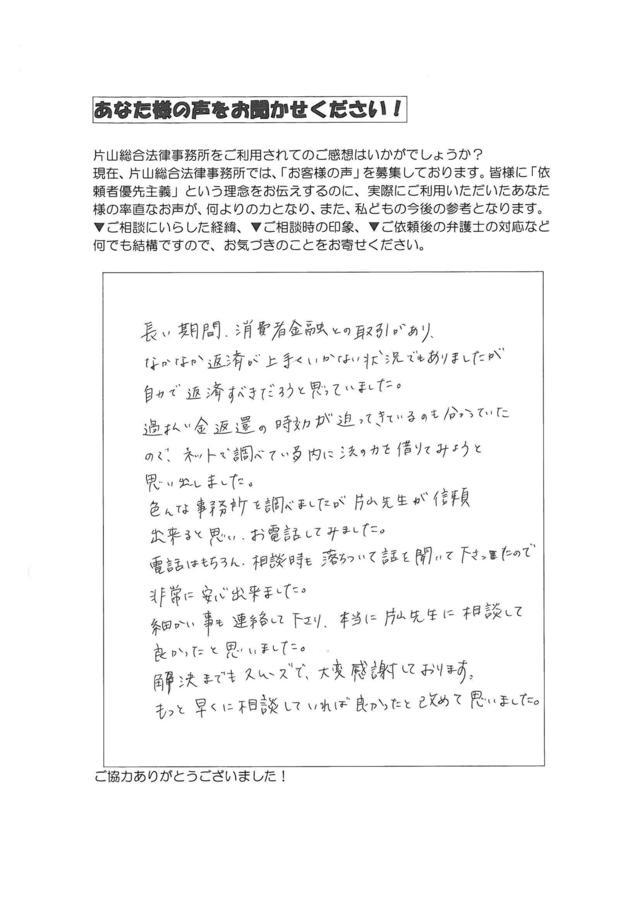 あなた様の声をお聞かせください！
片山総合法律事務所をご利用されてのご感想はいかがでしょうか？
現在、片山総合法律事務所では、「お客様の声」を募集しております。皆様に「依
頼者優先主義」という理念をお伝えするのに、実際にご利用いただいたあなた
様の率直なお声が、何よりの力となり、また、私どもの今後の参考となります。
▼ご相談にいらした経緯、▼ご相談時の印象、▼ご依頼後の弁護士の対応など
何でも結構ですので、お気づきのことをお寄せください。
長い期間、消費者金融との取引があり、
なかなか返済が上手くいかない状況でもありましたが
自力で返済すべきだろうと思っていました。
過払い金返還の時効が迫ってきているのも分っていた
ので、ネットで調べている内に法の力を借りてみようと
思い出しました。
色んな事務所を調べましたが片山先生が信頼
出来ると思い、お電話してみました。
電話はもちろん、相談時も落ちついて話を聞いて下さったので
非常に安心出来ました。
細かい事も連絡して下さり、本当に片山先生に相談して
良かったと思いました。
解決までもスムーズで、大変感謝しております。
もっと早くに相談していれば良かったと改めて思いました。
ご協力ありがとうございました！